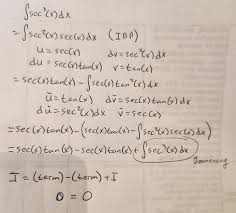 ∫sec³(x)dx
= ∫sec²(x)sec(x)dx (IBP)
u = sec(x) dv = sec²(x)dx
du = sec(x)tan(x) v = tan(x)
= sec(x)tan(x) - ∫sec(x)tan²(x)dx
ū = tan(x) dv̄ = sec(x)tan(x)dx
dū = sec²(x)dx v̄ = sec(x)
= sec(x)tan(x) - (sec(x)tan(x) - ∫sec²(x)sec(x)dx)
= sec(x)tan(x) - sec(x)tan(x) + ∫sec³(x)dx
Boomerang
I = (term) - (term) + I
0 = 0